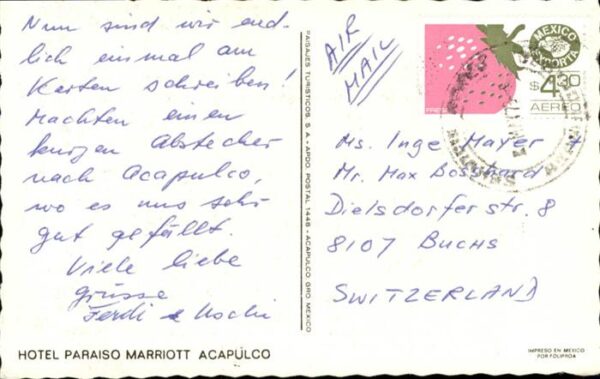 Nun sind wir end-
lich einmal am
Karten schreiben!
Machten einen
kurzen Abstecher
nach Acapulco,
wo es uns sehr
gut gefällt.
Viele liebe
grüsse
Ferdi &
HOTEL PARAISO MARRIOTT ACAPULCO
PAISAJES TURISTICOS, S. A. - APDO. POSTAL 1448 - ACAPULCO GRO. MEXICO
AIR
MAIL
MEXICO
EXPORTA
$4.30
AEREO
Ms. Inge Mayer +
Mr. Max Bosshard
Dielsdorferstr. 8
8107 BUCHS
SWITZERLAND
IMPRESO EN MEXICO
POR FOLIPROA